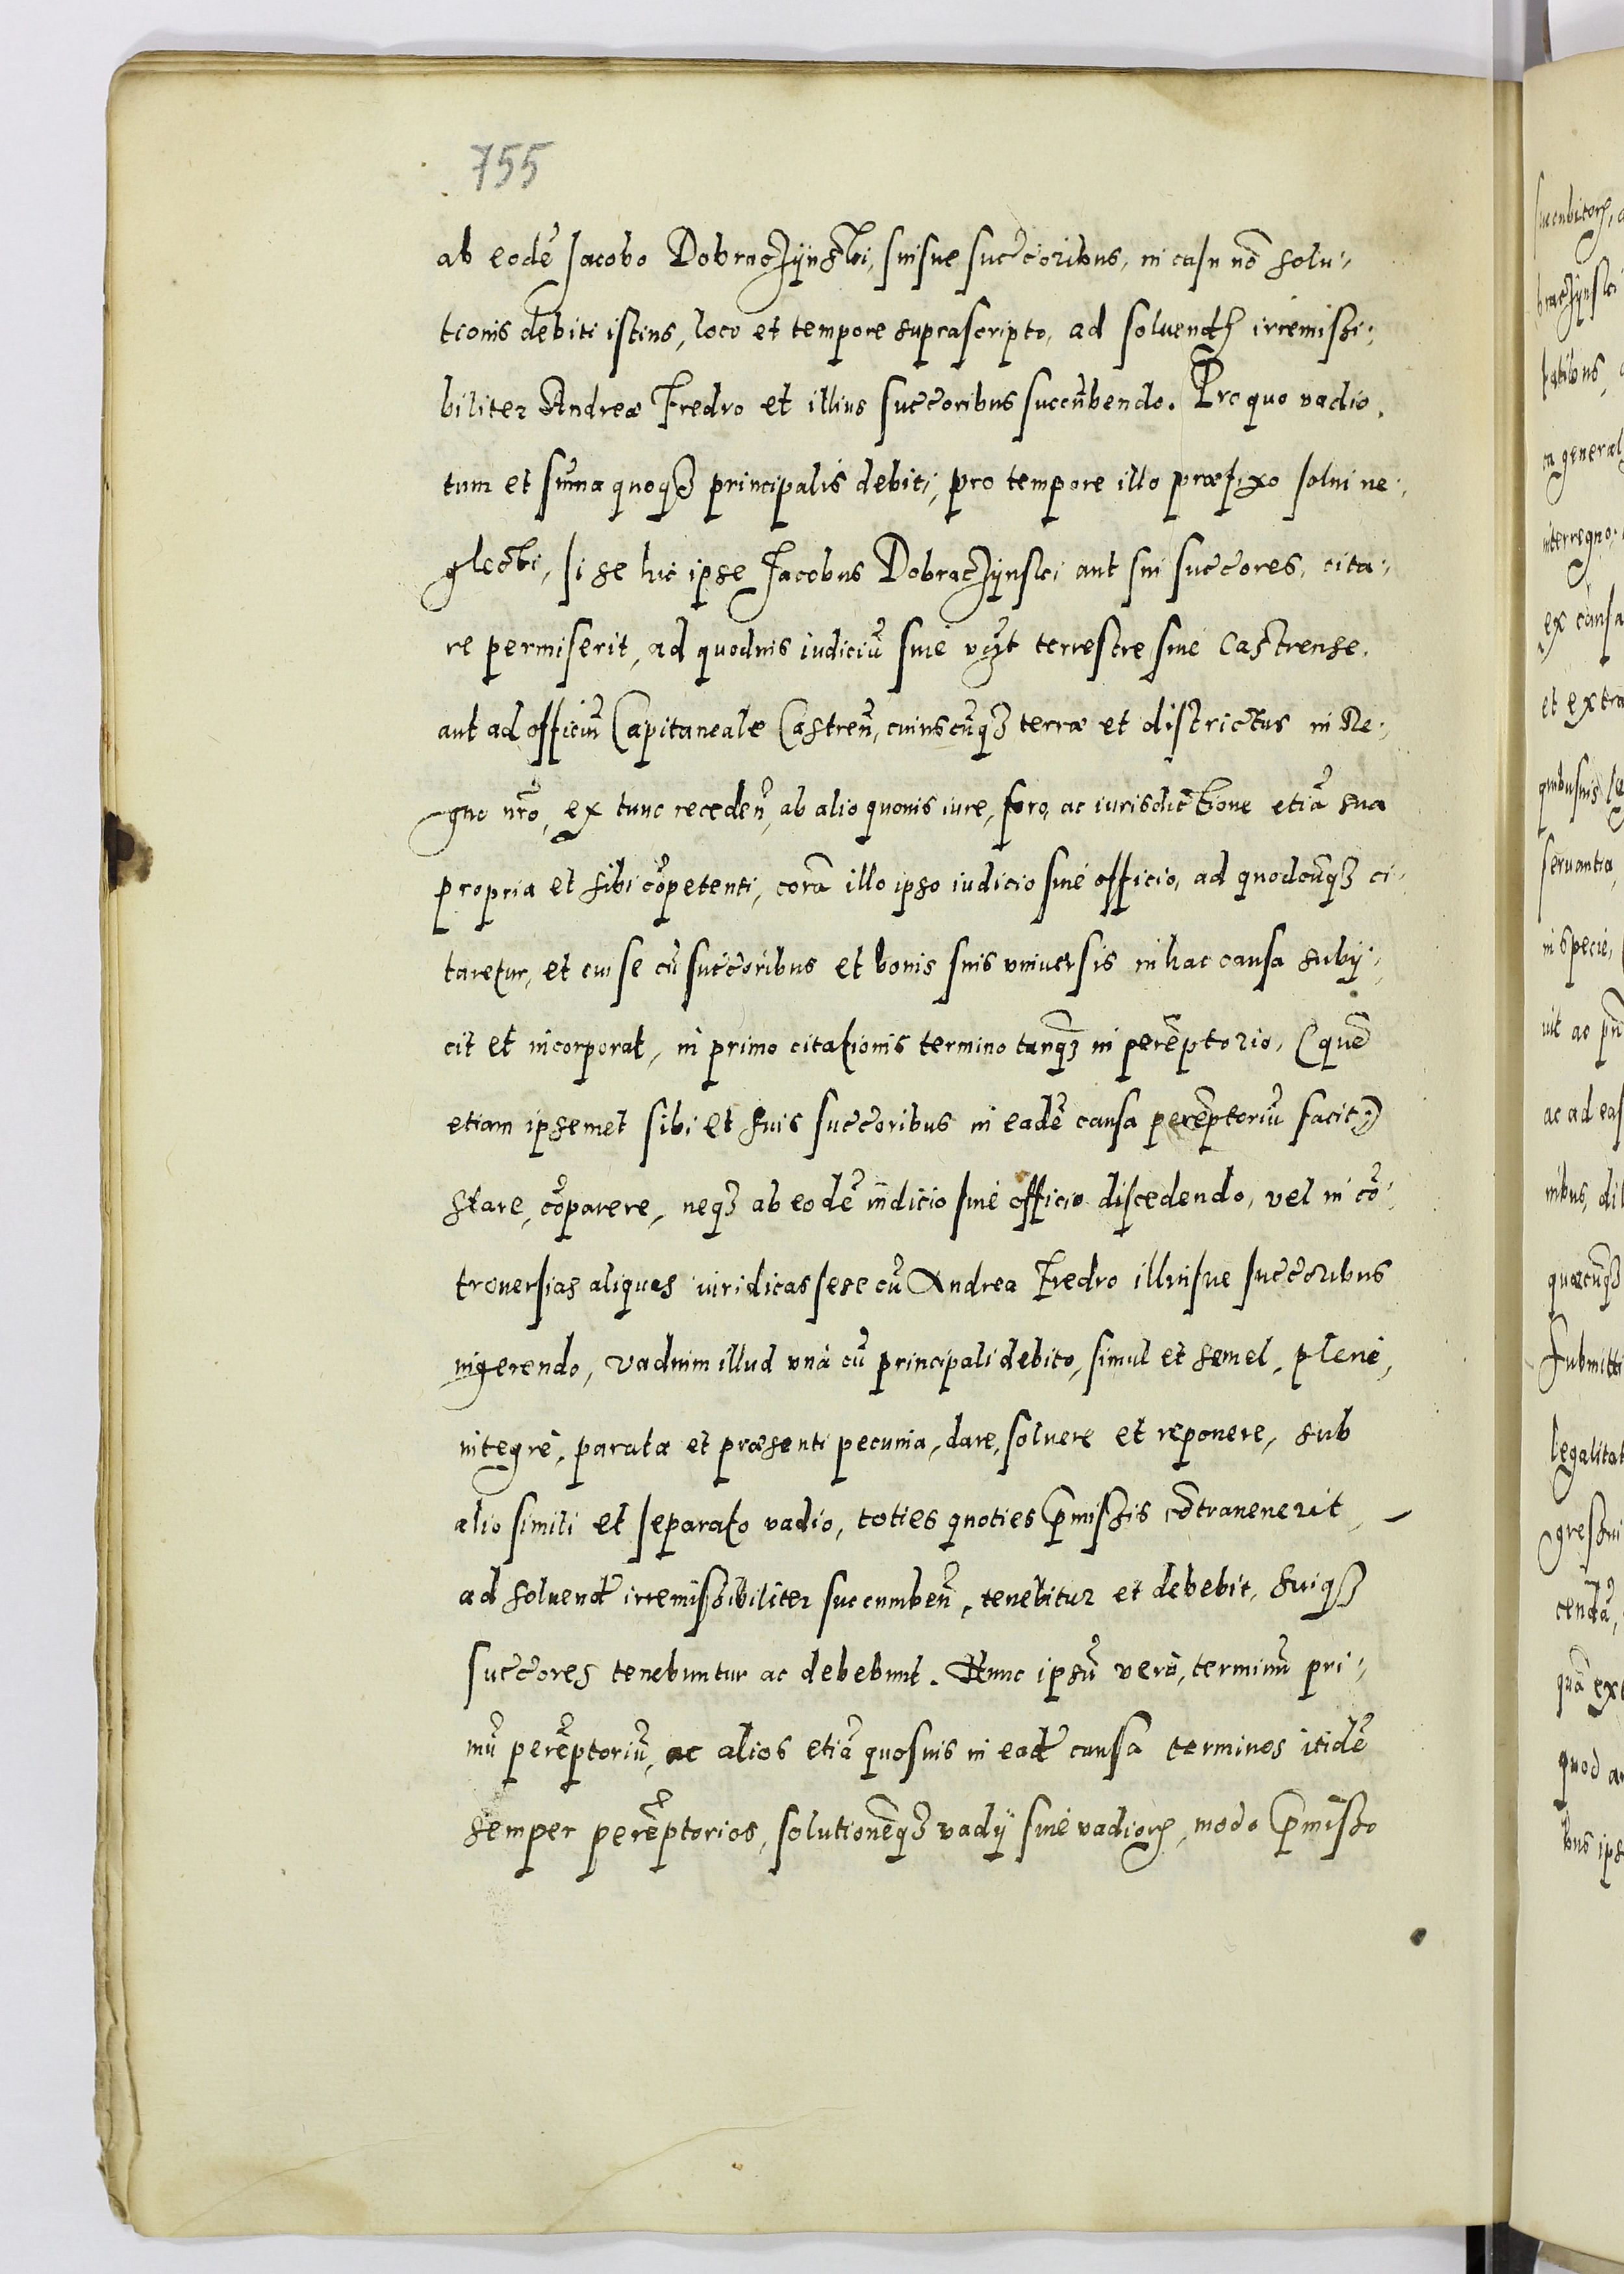 755
ab eodē Jacobo Dobraczÿnski, suisue succ̃oribus, in casu nō solu-
tionis debiti istius, loco et tempore suprascripto, ad soluend̃ irremissi-
biliter Andreæ Fredro et illius succ̃oribus succūbendo. Pro quo vadio
tum et sūma quoqȝ principalis debiti, pro tempore illo præfixo solui ne-
glecti, si se hic ipse Jacobus Dobraczÿnski aut sui succ̃ores, cita-
re permiserit, ad quoduis iudiciū siue vz̃t terrestre siue Castrense.
aut ad officiū Capitaneale Castreñ, cuiuscūqȝ terræ et districtus in Re-
gno nr̃o, ex tunc recedeñ, ab alio quouis iure, foro, ac iurisdictione etiā sua
propria et sibi cōpetenti, corā illo ipso iudicio siue officio, ad quodcūqȝ ci-
taretur, et cui se cū succ̃oribus et bonis suis vniuersis in hac causa subij-
cit et incorporat, in primo citationis termino tanq̃ȝ in perēptorio, (quē
etiam ipsemet sibi et suis succ̃oribus in eadē causa perēptoriū facit:)
stare, cōparere, neqȝ ab eodē iudicio siue officio discedendo, vel in cō-
trouersias aliquas iuridicas sese cū Andrea Fredro illiusue succ̃oribus
ingerendo, vadium illud vnà cū principali debito, simul et semel, plenè,
integrè, parata et præsenti pecunia, dare, soluere et reponere, sub
alio simili et separato vadio, toties quoties p̃missis cōtrauenerit
ad soluend̃ irremissibiliter succumbeñ, tenebitur et debebit, suiqȝ
succ̃ores tenebuntur ac debebunt. Hunc ipsū verò, terminū pri-
mū perēptoriū, ac alios etiā quosuis in ead̃ causa terminos itidē
semper perēptorios, solutionēqȝ vadij siue vadiorꝝ, modo p̃misso